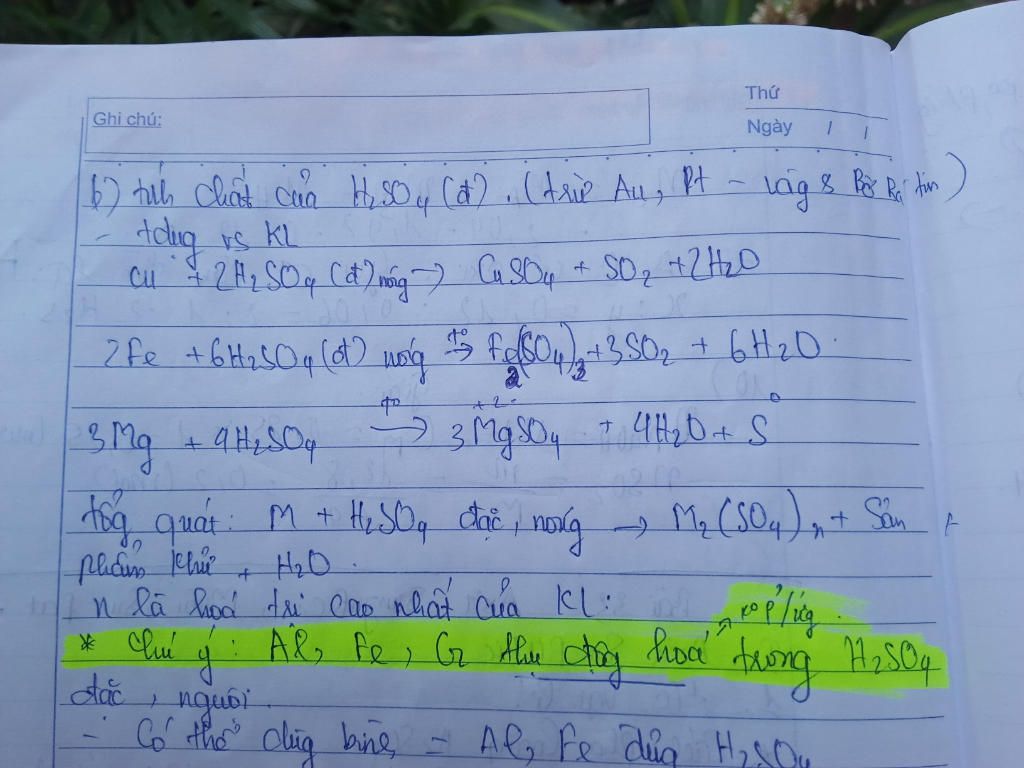 Ghi chú:
Thứ
Ngày / /
b) tính chất của H₂SO₄ (đ). (trừ Au, Pt - vàg &
- tdụg vs KL
Cu + 2H₂SO₄ (đ) nóg → CuSO₄ + SO₂ + 2H₂O
2Fe + 6H₂SO₄ (đ) nóg t° → Fe₂(SO₄)₃ + 3SO₂ + 6H₂O
3Mg + 4H₂SO₄ t° → 3Mg⁺²SO₄ + 4H₂O + S⁰
tổg quát: M + H₂SO₄ đặc, nóng → M₂(SO₄)ₙ + Sản
phẩm khử + H₂O.
n là hoá trị cao nhất của KL:
→ ko p/ứg
* chú ý: Al, Fe, Cr thụ độg hoá trong H₂SO₄
đặc, nguội.
- Có thể dùg bình = Al, Fe đựg H₂SO₄